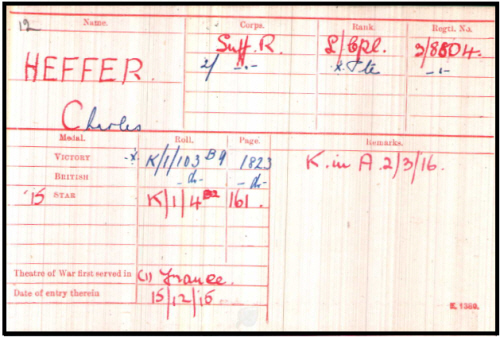 12 Name. Corps. Rank. Regtl. No.
HEFFER. Suff. R. L/Cpl. 3/8804.
2/ -"- x. Pte -"-
Charles
Medal. Roll. Page. Remarks.
VICTORY x. K/1/103 B9 1823 K. in A. 2/3/16.
BRITISH -do- -do-
'15 STAR K/1/4 B2 161.
Theatre of War first served in (1) France.
Date of entry therein 15/12/15
K. 1380.